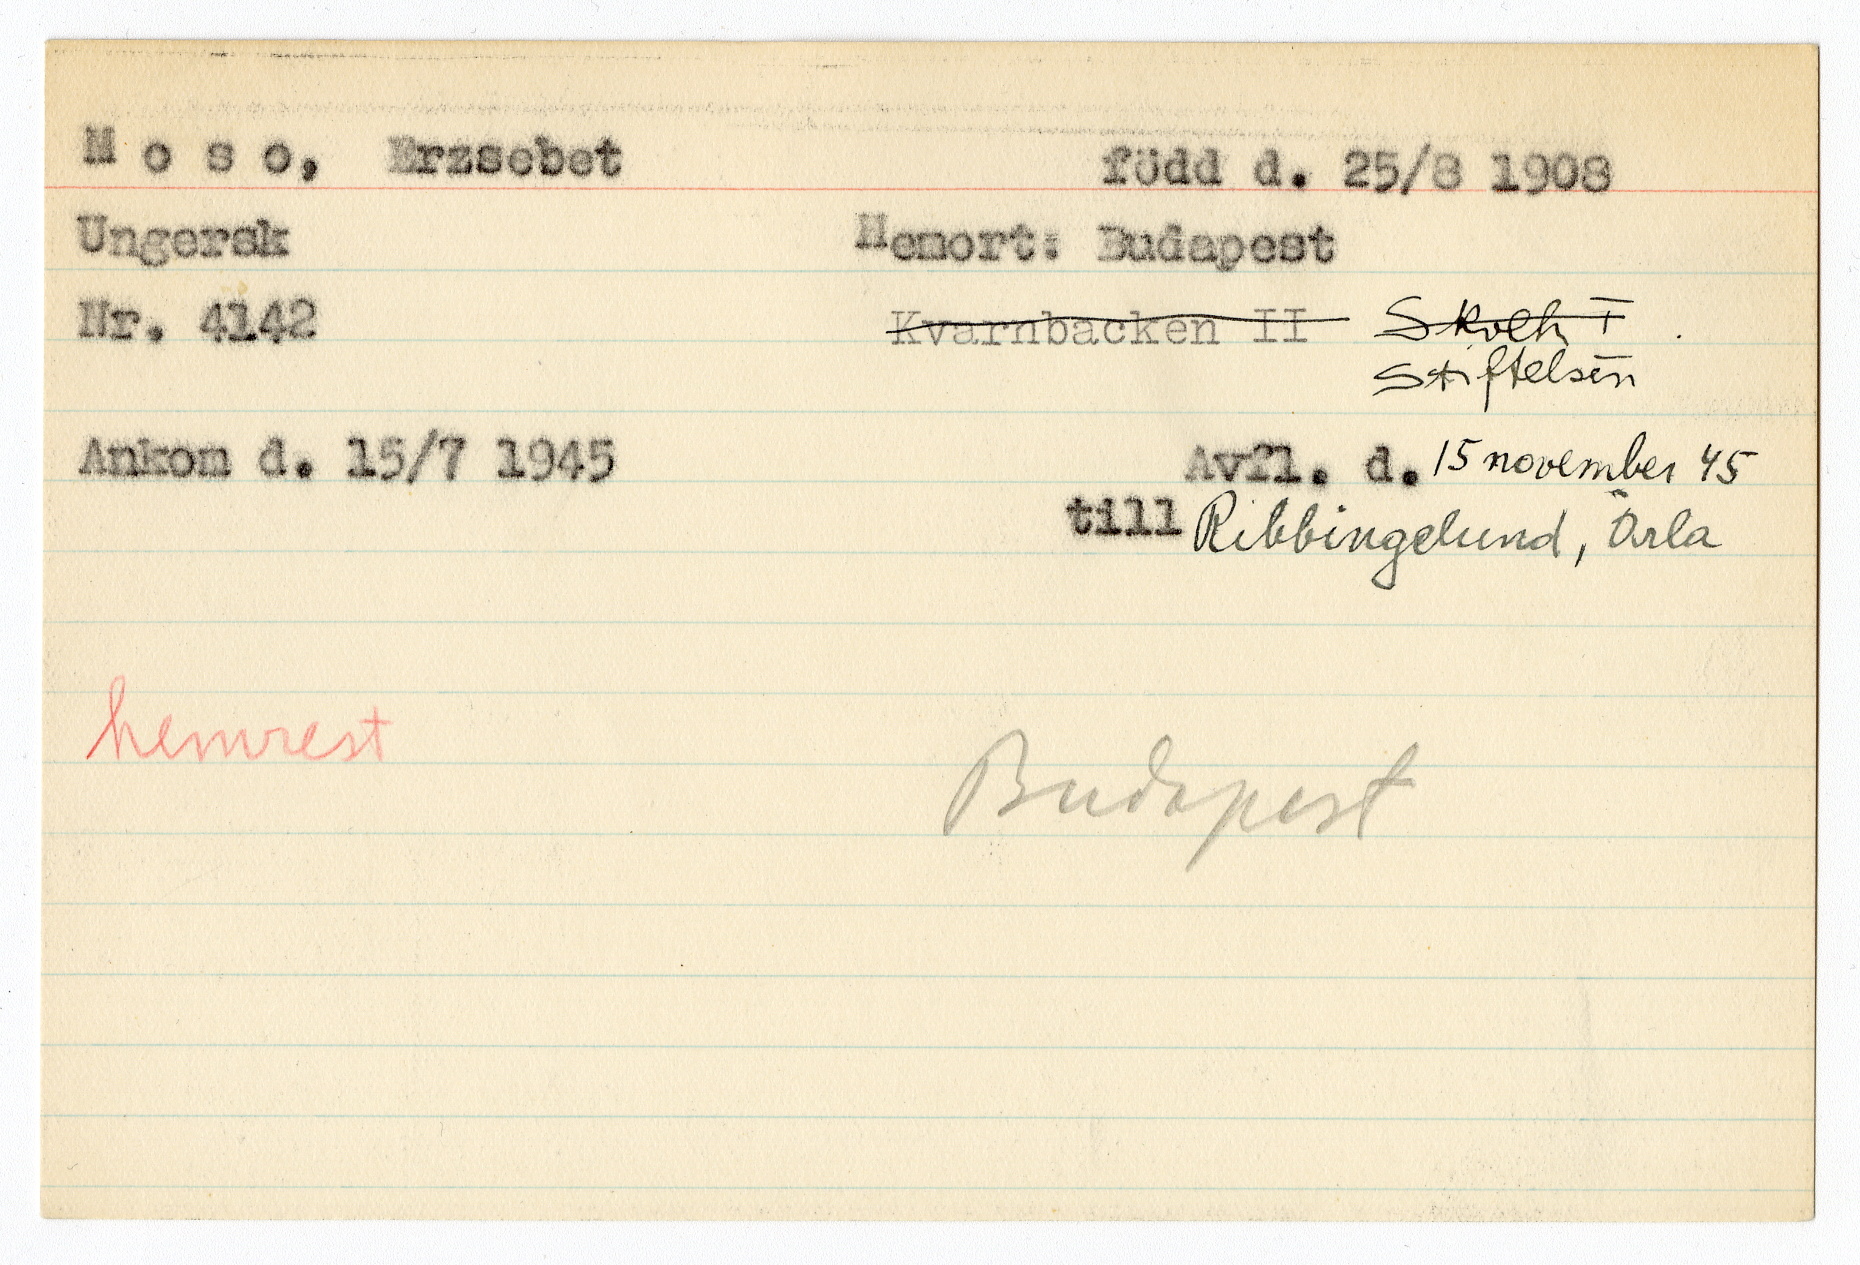 M o s o, Erzsebet född d. 25/8 1908
Ungersk Hemort: Budapest
Nr. 4142 Kvarnbacken II
Stiftelsen
Ankom d. 15/7 1945 Avfl. d. 15 november 45
till Ribbingelund, Ärla
hemrest
Budapest